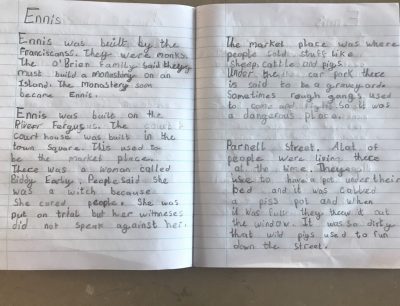 Ennis
Ennis was built by the
Franciscans. They were monks.
The O'Brien Family said they
must build a monastry on an
Island. The monastery soon
became Ennis.
Ennis was built on the
River Fergus. The
Courthouse was built in the
town Square. This used to
be the market place.
There was a woman called
Biddy Early. People said she
was a witch because
she cured people. She was
put on trial but her witnesses
did not speak against her.
The market place was where
people sold stuff like
sheep, cattle and pigs.
Under the car park there
is said to be a graveyard.
Sometimes rough gangs used
to come and fight so it was
a dangerous place.
Parnell Street. A lot of
people were living there
at the time. They
have to have a pot under their
bed and it was called
a piss pot and when
it was full they threw it out
the window. It was so dirty
that wild pigs used to run
down the street.